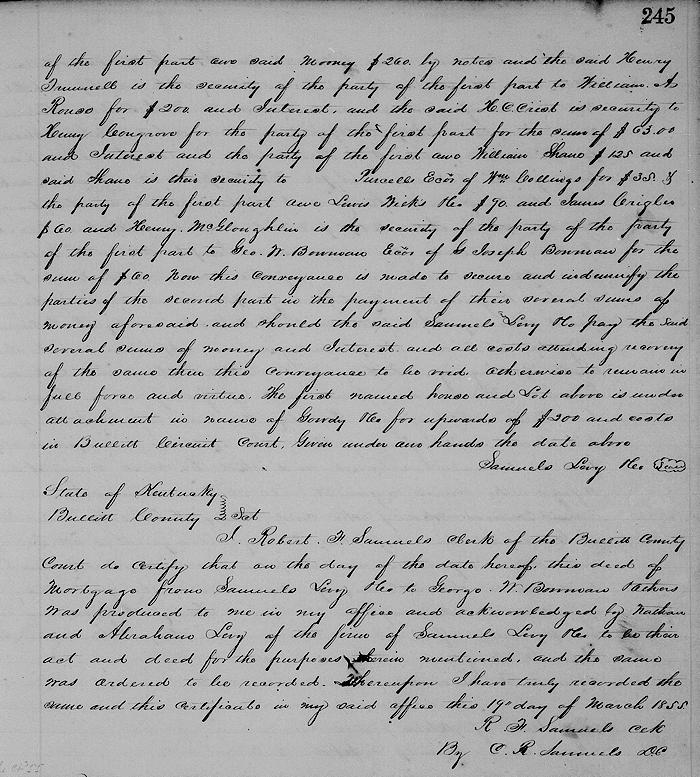 245
of the first part owe said Mooney $260. by notes and the said Henry
Trunnell is the security of the party of the first part to William. A
Rouse for $200. and Interest, and the said H. C. Crist is security to
Henry Congrove for the party of the first part for the sum of $63.00
and Interest and the party of the first owe William Shane $125 and
said Shane is their security to Purcells Ecõrs of Wm. Collings for $35. &
the party of the first part owe Lewis Wicks &Co $90. and James Crigler
$60. and Henry. McGloughlin is the security of the party of the party
of the first part to Geo. W. Bowman Ecõr of Joseph Bowman for the
sum of $60. Now this conveyance is made to secure and indemnify the
parties of the second part in the payment of their several sums of
money aforesaid. and should the said Samuels Levy &Co pay the said
several sums of money and Interest. and all costs attending recovery
of the same then this conveyance to be void, otherwise to remain in
full force and virtue. The first named house and Lot above is under
attachment in name of Gowdy &Co for upwards of $200 and costs
in Bullitt Circuit Court, Given under our hands the date above
Samuels Levy &Co Seal
State of Kentucky
Bullitt County Sct
I. Robert. F. Samuels Clerk of the Bullitt County
Court do certify that on the day of the date hereof, this deed of
Mortgage from Samuels Levy &Co to George. W. Bowman &others
was produced to me in my office and acknowledged by Nathan
and Abraham Levy of the firm of Samuels Levy &Co to be their
act and deed for the purposes therein mentioned, and the same
was ordered to be recorded. Whereupon I have truly recorded the
same and this certificate in my said office this 19th day of March 1855
R. F. Samuels Clk
By C. R. Samuels DC